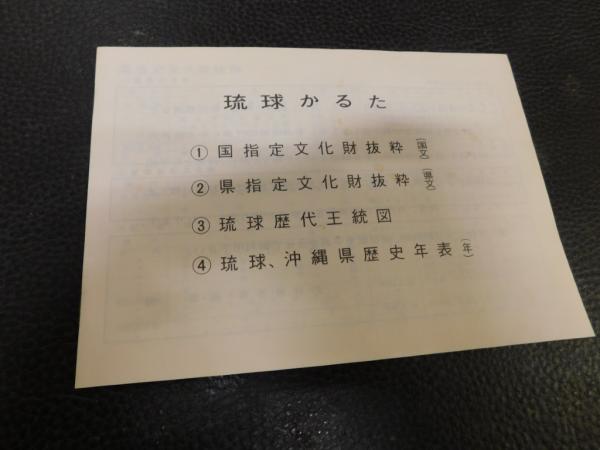 琉球かるた
① 国指定文化財抜粋(国文)
② 県指定文化財抜粋(県文)
③ 琉球歴代王統図
④ 琉球、沖縄県歴史年表(年)